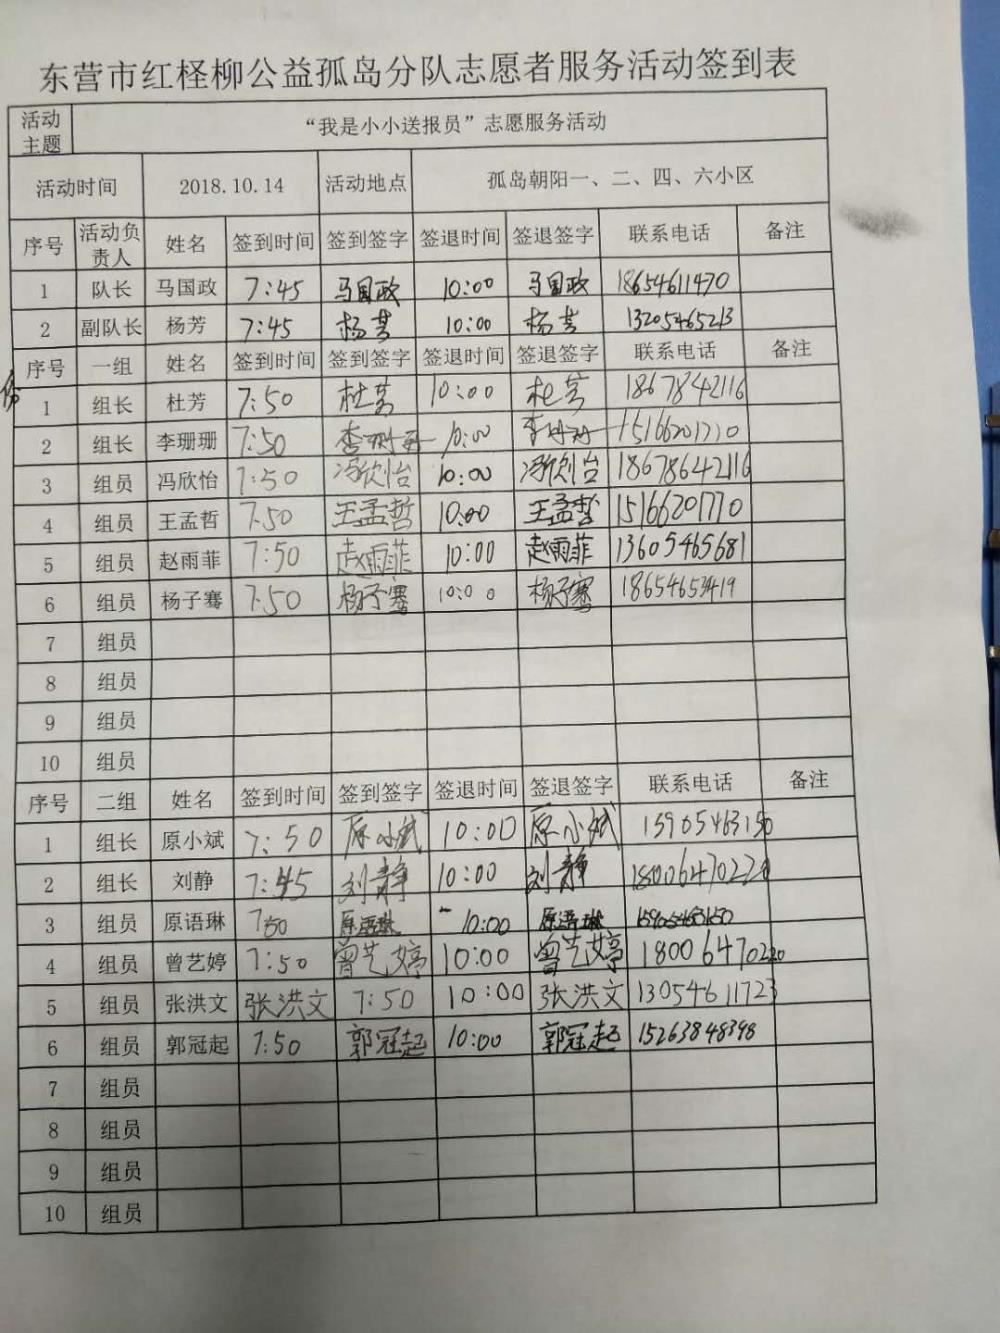 东营市红柽柳公益孤岛分队志愿者服务活动签到表
活动主题 “我是小小送报员”志愿服务活动
活动时间 2018.10.14 活动地点 孤岛朝阳一、二、四、六小区
序号 活动负责人 姓名 签到时间 签到签字 签退时间 签退签字 联系电话 备注
1 队长 马国政 7:45 马国政 10:00 马国政 18654611470
2 副队长 杨芳 7:45 杨芳 10:00 杨芳 13205465213
序号 一组 姓名 签到时间 签到签字 签退时间 签退签字 联系电话 备注
1 组长 杜芳 7:50 杜芳 10:00 杜芳 18678642116
2 组长 李珊珊 7:50 李珊珊 10:00 李珊珊 15166201770
3 组员 冯欣怡 7:50 冯欣怡 10:00 冯欣怡 18678642116
4 组员 王孟哲 7.50 王孟哲 10:00 王孟哲 15166201770
5 组员 赵雨菲 7:50 赵雨菲 10:00 赵雨菲 13605465681
6 组员 杨子骞 7.50 杨子骞 10:00 杨子骞 18654653419
7 组员
8 组员
9 组员
10 组员
序号 二组 姓名 签到时间 签到签字 签退时间 签退签字 联系电话 备注
1 组长 原小斌 7:50 原小斌 10:00 原小斌 15905463150
2 组长 刘静 7:45 刘静 10:00 刘静 18006470220
3 组员 原语琳 7:50 原语琳 10:00 原语琳 15905463150
4 组员 曾艺婷 7:50 曾艺婷 10:00 曾艺婷 18006470220
5 组员 张洪文 张洪文 7:50 10:00 张洪文 13054611723
6 组员 郭冠起 7:50 郭冠起 10:00 郭冠起 15263848398
7 组员
8 组员
9 组员
10 组员